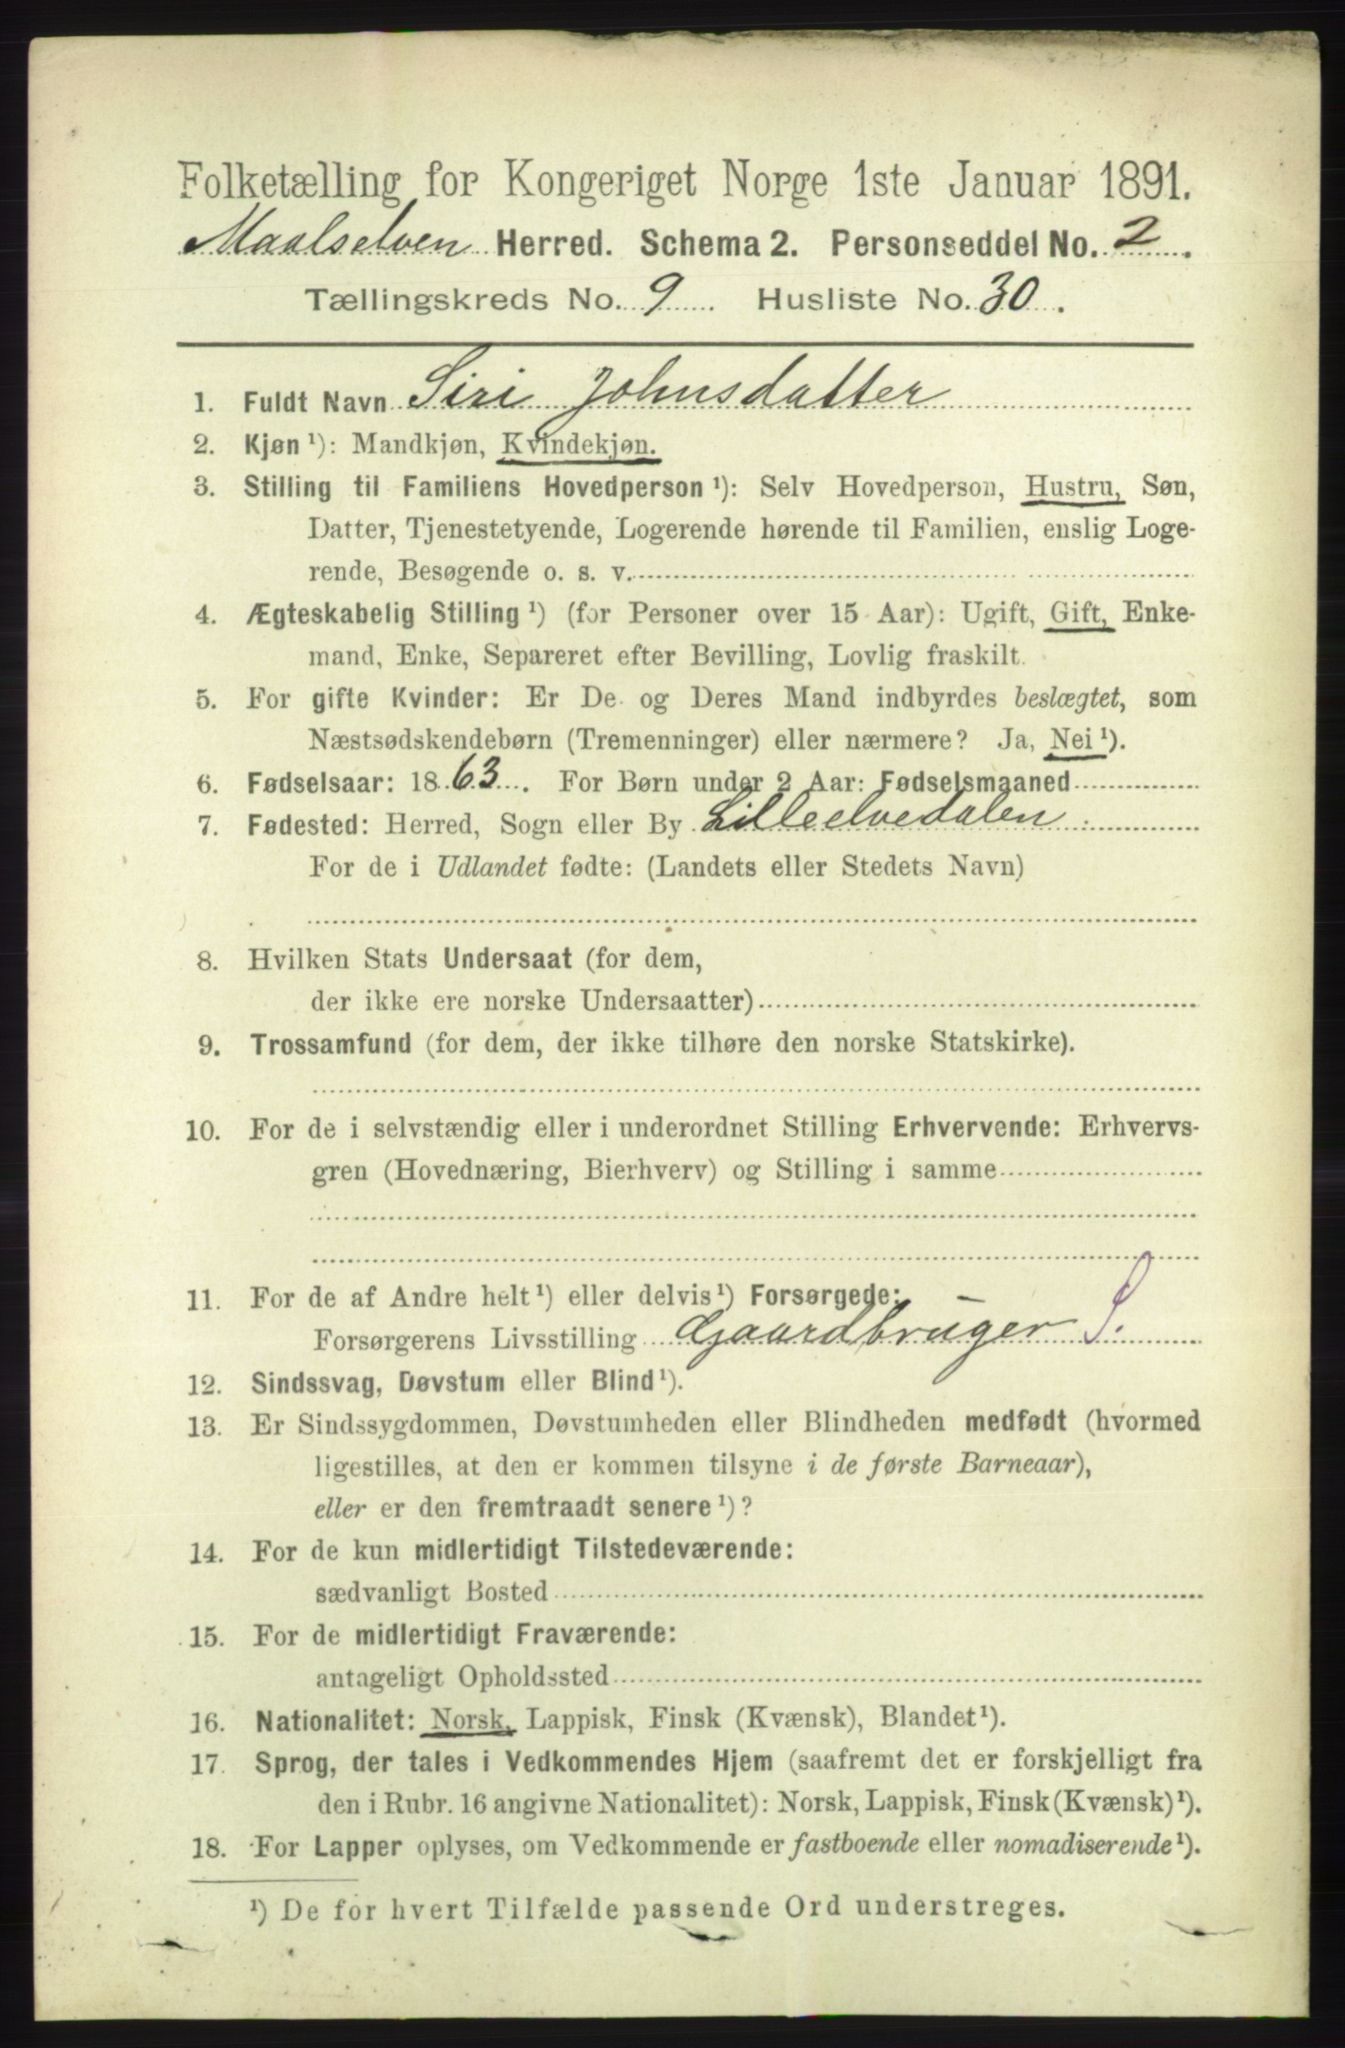 Folketælling for Kongeriget Norge 1ste Januar 1891.
Maalselven Herred. Schema 2. Personseddel No. 2.
Tællingskreds No. 9. Husliste No. 30.
1. Fuldt Navn Siri Johnsdatter
2. Kjøn ¹): Mandkjøn, Kvindekjøn.
3. Stilling til Familiens Hovedperson ¹): Selv Hovedperson, Hustru, Søn,
Datter, Tjenestetyende, Logerende hørende til Familien, enslig Loge-
rende, Besøgende o. s. v.
4. Ægteskabelig Stilling ¹) (for Personer over 15 Aar): Ugift, Gift, Enke-
mand, Enke, Separeret efter Bevilling, Lovlig fraskilt.
5. For gifte Kvinder: Er De og Deres Mand indbyrdes beslægtet, som
Næstsødskendebørn (Tremenninger) eller nærmere? Ja, Nei ¹).
6. Fødselsaar: 1863. For Børn under 2 Aar: Fødselsmaaned
7. Fødested: Herred, Sogn eller By Lilleelvedalen
For de i Udlandet fødte: (Landets eller Stedets Navn)
8. Hvilken Stats Undersaat (for dem,
der ikke ere norske Undersaatter)
9. Trossamfund (for dem, der ikke tilhøre den norske Statskirke).
10. For de i selvstændig eller i underordnet Stilling Erhvervende: Erhvervs-
gren (Hovednæring, Bierhverv) og Stilling i samme
11. For de af Andre helt ¹) eller delvis ¹) Forsørgede:
Forsørgerens Livsstilling Gaardbruger S.
12. Sindssvag, Døvstum eller Blind ¹).
13. Er Sindssygdommen, Døvstumheden eller Blindheden medfødt (hvormed
ligestilles, at den er kommen tilsyne i de første Barneaar),
eller er den fremtraadt senere ¹)?
14. For de kun midlertidigt Tilstedeværende:
sædvanligt Bosted
15. For de midlertidigt Fraværende:
antageligt Opholdssted
16. Nationalitet: Norsk, Lappisk, Finsk (Kvænsk), Blandet ¹).
17. Sprog, der tales i Vedkommendes Hjem (saafremt det er forskjelligt fra
den i Rubr. 16 angivne Nationalitet): Norsk, Lappisk, Finsk (Kvænsk) ¹).
18. For Lapper oplyses, om Vedkommende er fastboende eller nomadiserende ¹).
¹) De for hvert Tilfælde passende Ord understreges.